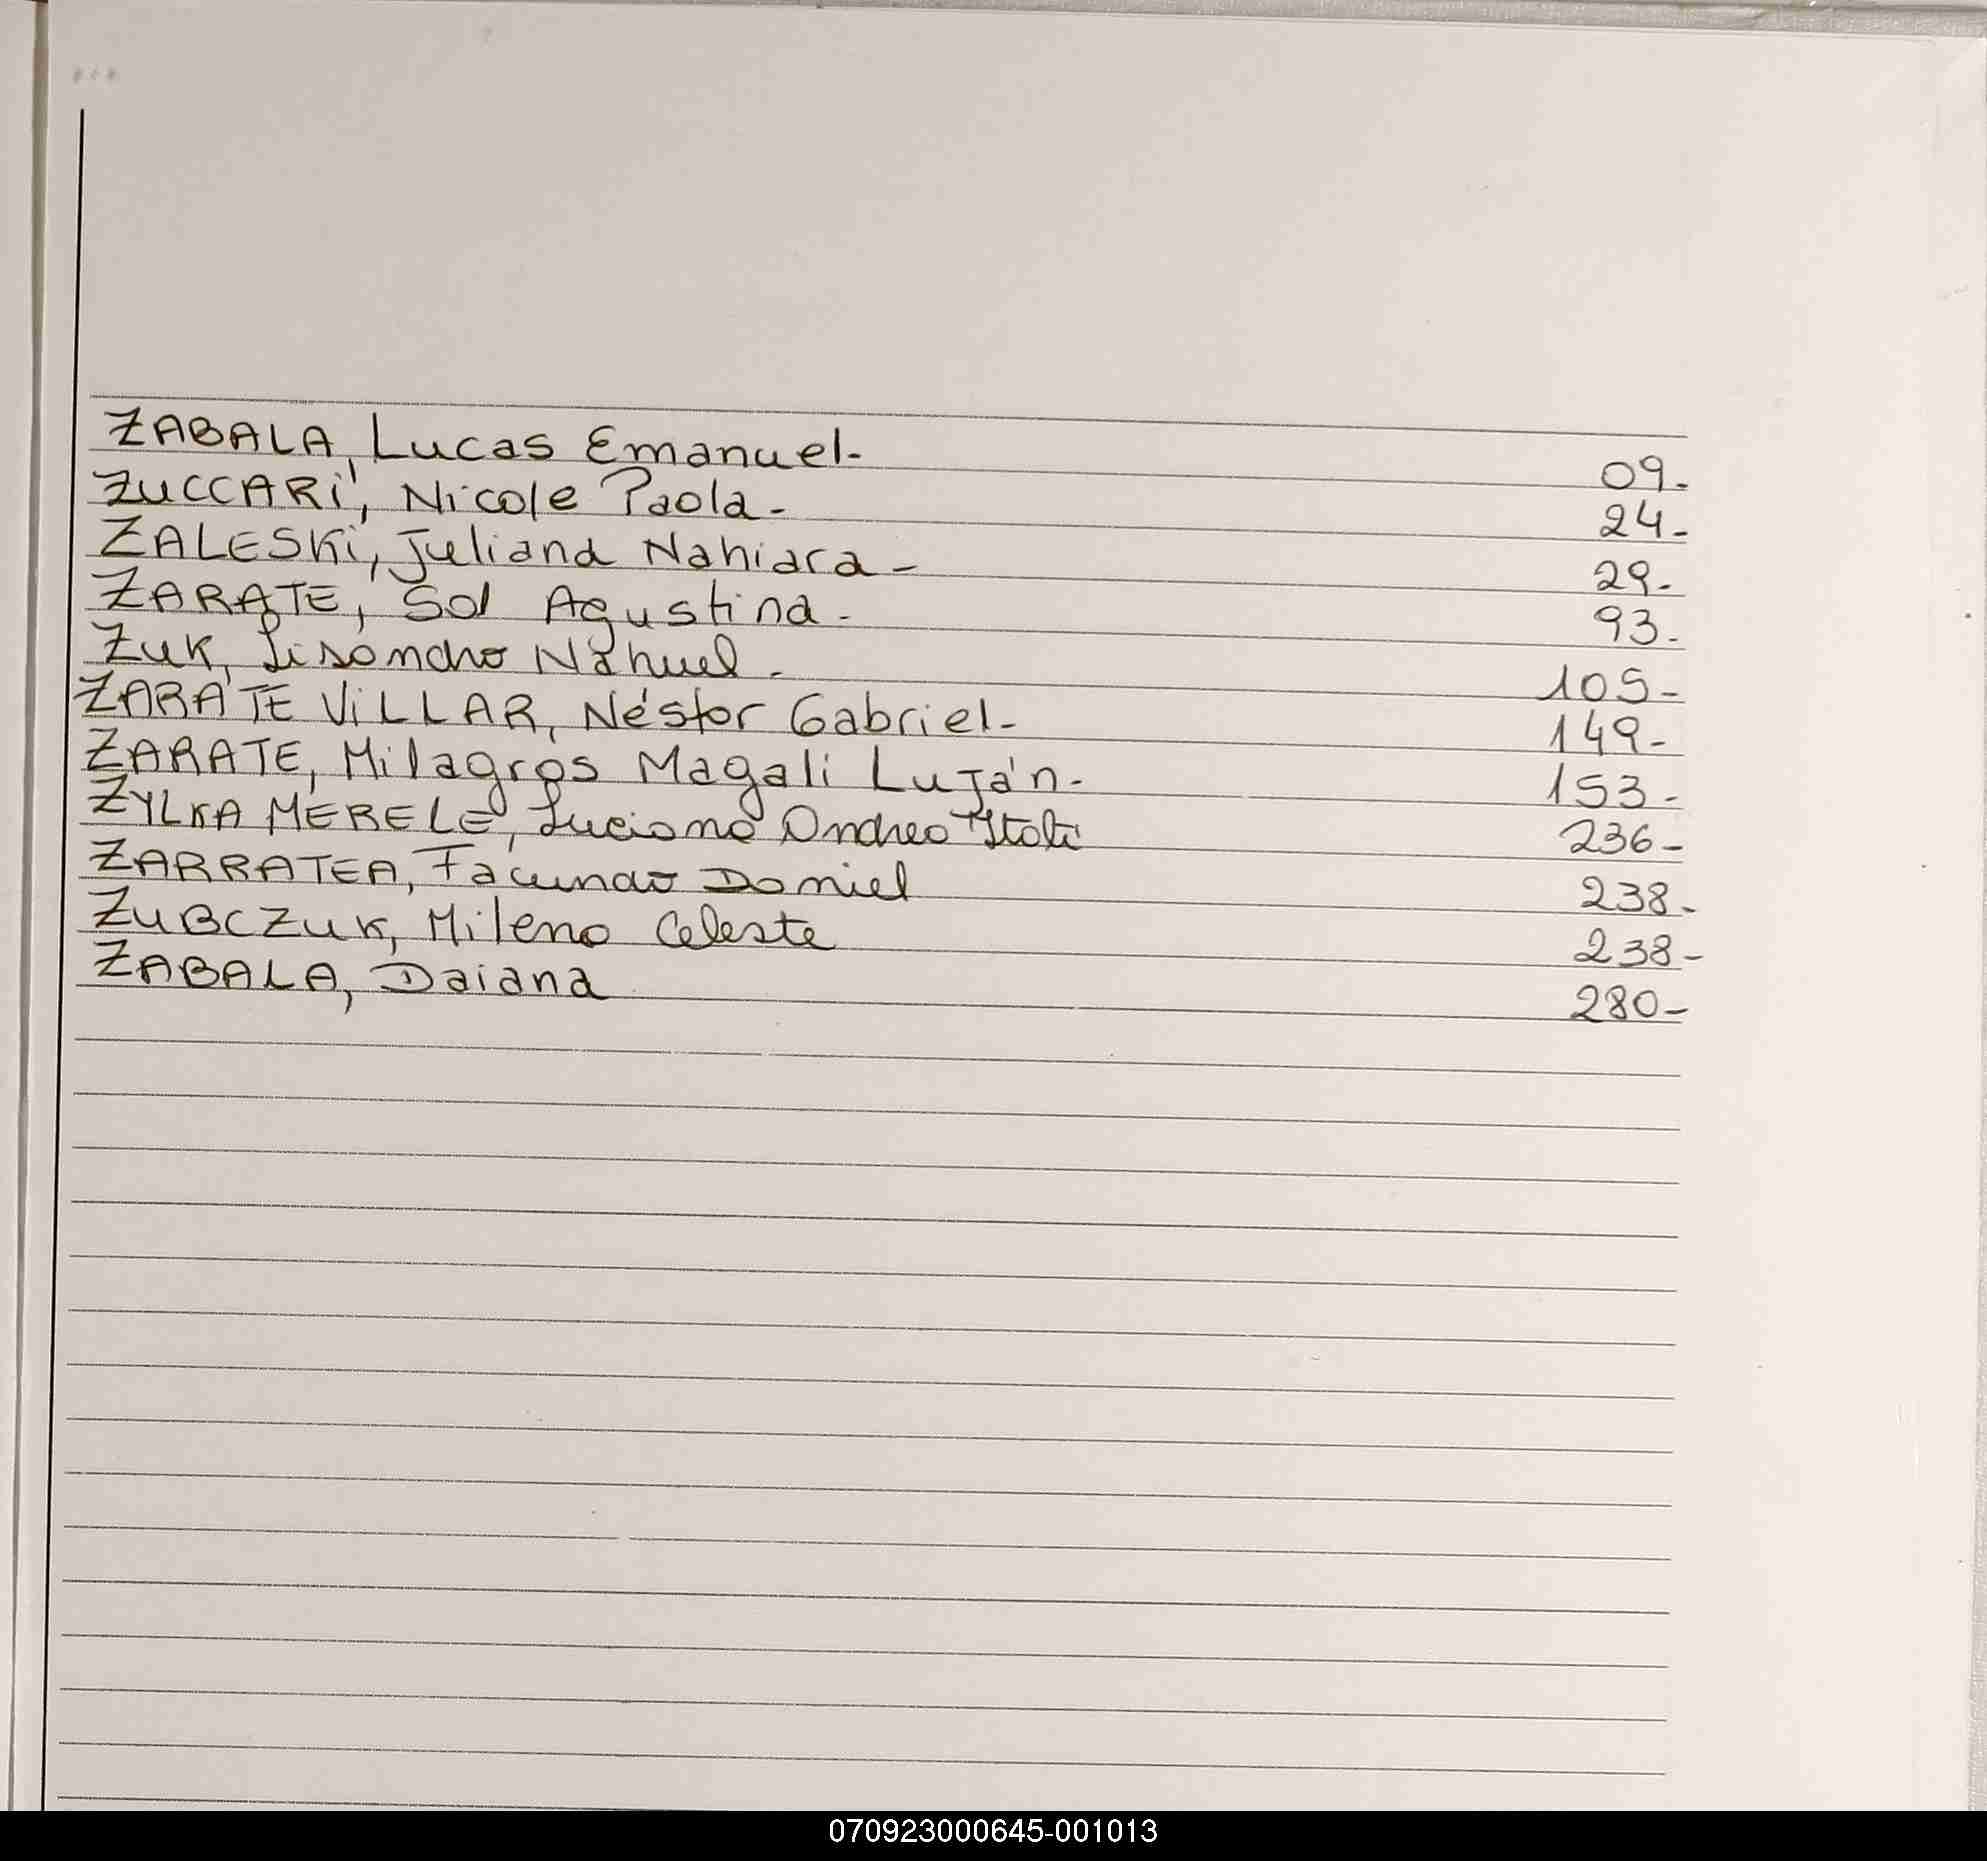 ZABALA, Lucas Emanuel- 09-
ZUCCARI, Nicole Paola- 24-
ZALESKi, Juliana Nahiara- 29-
ZARATE, Sol Agustina- 93-
ZUK, Lisandro Nahuel- 105-
ZARATE ViLLAR, Néstor Gabriel- 149-
ZARATE, Milagros Magali Luján- 153-
ZYLKA MERELE, Luciano Andreo 236-
ZARRATEA, Facundo Daniel 238-
ZUBCZUK, Milena Celeste 238-
ZABALA, Daiana 280-
070923000645-001013